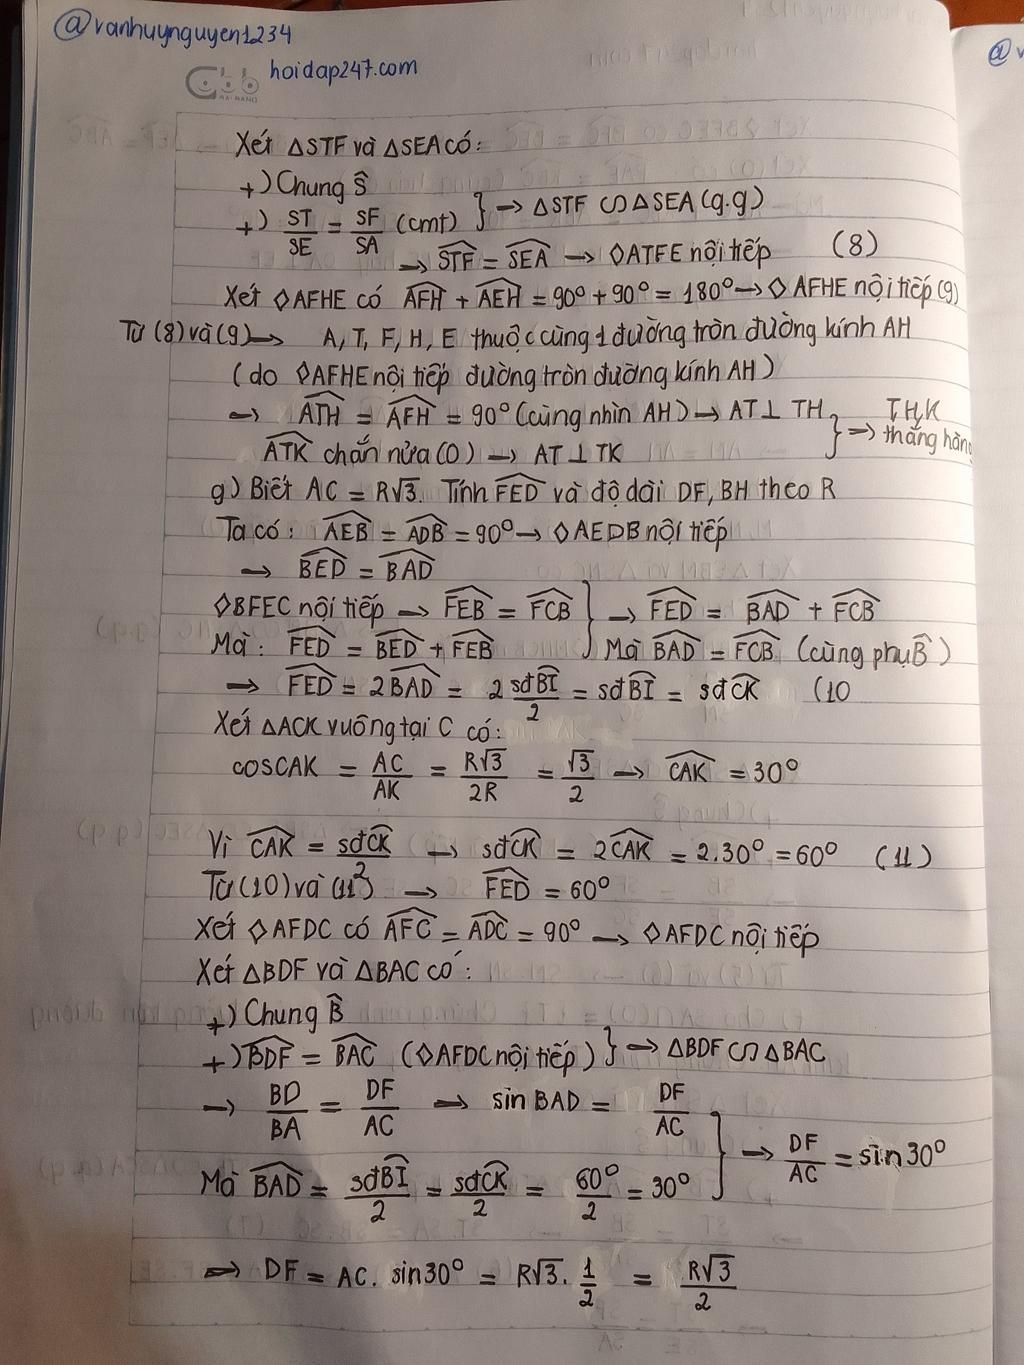 @vanhuynguyen1234
hoidap247.com
Xét ΔSTF và ΔSEA có:
+) Chung Ŝ
+) ST/SE = SF/SA (cmt) } → ΔSTF ∽ ΔSEA (g.g)
→ ∠STF = ∠SEA → ◊ATFE nội tiếp (8)
Xét ◊AFHE có ∠AFH + ∠AEH = 90° + 90° = 180° → ◊AFHE nội tiếp (9)
Từ (8) và (9) → A, T, F, H, E thuộc cùng 1 đường tròn đường kính AH
(do ◊AFHE nội tiếp đường tròn đường kính AH)
→ ∠ATH = ∠AFH = 90° (cùng nhìn AH) → AT ⊥ TH } → T,H,K thẳng hàng
∠ATK chắn nửa (O) → AT ⊥ TK
g) Biết AC = R√3. Tính ∠FED và độ dài DF, BH theo R
Ta có: ∠AEB = ∠ADB = 90° → ◊AEDB nội tiếp
→ ∠BED = ∠BAD
◊BFEC nội tiếp → ∠FEB = ∠FCB } → ∠FED = ∠BAD + ∠FCB
Mà: ∠FED = ∠BED + ∠FEB } Mà ∠BAD = ∠FCB (cùng phụ B̂)
→ ∠FED = 2∠BAD = 2 sđBI/2 = sđBI = sđCK (10
Xét ΔACK vuông tại C có:
cosCAK = AC/AK = R√3/2R = √3/2 → ∠CAK = 30°
Vì ∠CAK = sđCK/2 → sđCK = 2∠CAK = 2.30° = 60° (11)
Từ (10) và (11) → ∠FED = 60°
Xét ◊AFDC có ∠AFC = ∠ADC = 90° → ◊AFDC nội tiếp
Xét ΔBDF và ΔBAC có:
+) Chung B̂
+) ∠BDF = ∠BAC (◊AFDC nội tiếp) } → ΔBDF ∽ ΔBAC
→ BD/BA = DF/AC → sin BAD = DF/AC } → DF/AC = sin30°
Mà ∠BAD = sđBI/2 = sđCK/2 = 60°/2 = 30°
→ DF = AC. sin30° = R√3. 1/2 = R√3/2